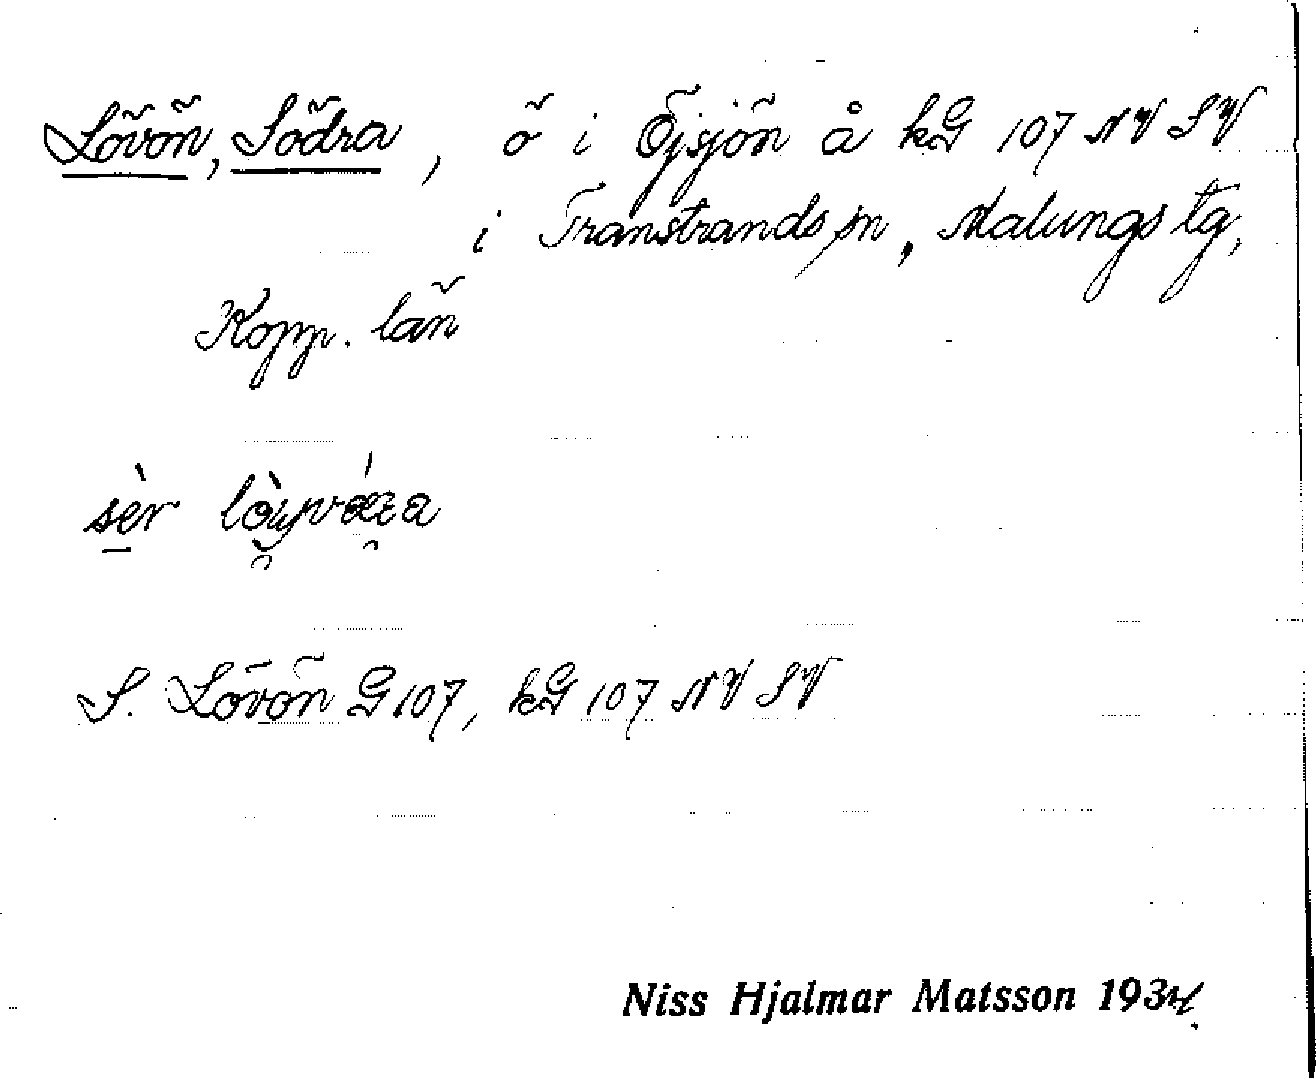 Lövön, Södra, ö i Öjsjön å kG 107 NV SV
i Transtrands sn, Malungs tg,
Kopp. län
sèr
S. Lövön G 107, kG 107 NV SV
Niss Hjalmar Matsson 1934.